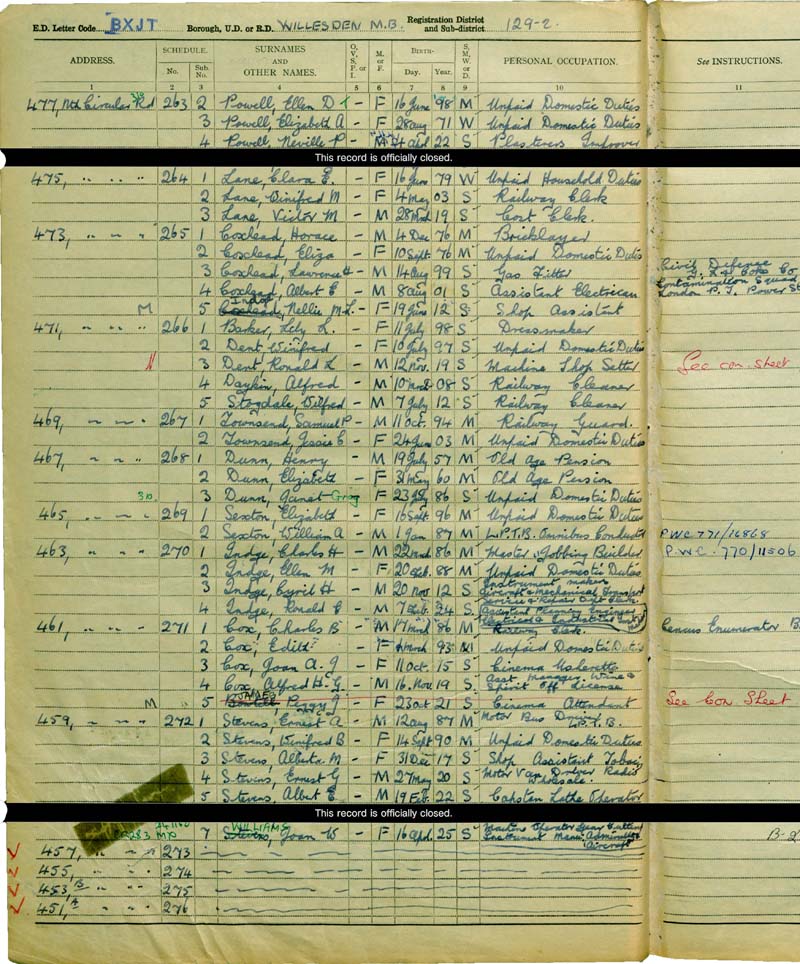 E.D. Letter Code BXJT Borough, U.D. or R.D. WILLESDEN M.B. Registration District and Sub-district 129-2.
ADDRESS. SCHEDULE. No. Sub. No. SURNAMES AND OTHER NAMES. O, V, S, P, or I. M. or F. BIRTH- Day. Year. S, M, W, or D. PERSONAL OCCUPATION. See INSTRUCTIONS.
1 2 3 4 5 6 7 8 9 10 11
477, Nth Circular Rd 263 2 Powell, Ellen D - F 16 June '98 M Unpaid Domestic Duties
3 Powell, Elizabeth A - F 28 Aug 71 W Unpaid Domestic Duties
4 Powell, Neville P - M 22 S Plasterers Improver
This record is officially closed.
475, " " " 264 1 Lane, Clara E. - F 16 79 W Unpaid Household Duties
2 Lane, Winifred M - F 4 May 03 S Railway Clerk
3 Lane, Victor M - M 28 Mch 19 S Cost Clerk.
473, " " " 265 1 Coxhead, Horace - M 4 Dec 76 M Bricklayer
2 Coxhead, Eliza - F 10 Sept. 76 M Unpaid Domestic Duties
3 Coxhead, Lawrence H - M 14 Aug 99 S Gas Fitter Civil Defence G. L & Coke Co Contamination Squad
4 Coxhead, Albert E - M 8 Aug 01 S Assistant Electrician London P. T. Power
M 5 Coxhead, Nellie M.L. - F 19 June 12 S Shop Assistant
471, " " " 266 1 Barker, Lily L. - F 11 July 98 S Dressmaker
2 Dent, Winifred - F 10 July 97 S Unpaid Domestic Duties
3 Dent, Ronald L - M 12 Nov. 19 S Machine Shop Setter See con. sheet
4 Daykin, Alfred - M 10 08 S Railway Cleaner
5 Stogdale, Wilfred - M 7 July 12 S Railway Cleaner
469, " " " 267 1 Townsend, Samuel P - M 11 Oct. 94 M Railway Guard.
2 Townsend, Jessie E - F 24 Jan 03 M Unpaid Domestic Duties
467, " " " 268 1 Dunn, Henry - M 19 July 57 M Old Age Pension
2 Dunn, Elizabeth - F 31 May 60 M Old Age Pension
3 Dunn, Janet - F 23 July 86 S Unpaid Domestic Duties
465, " " " 269 1 Sexton, Elizabeth - F 16 Sept. 96 M Unpaid Domestic Duties
2 Sexton, William A - M 1 Jan 87 M L.P.T.B. Omnibus Conductor PWC 771/16868
463, " " " 270 1 Indge, Charles H - M 22 86 M Master Jobbing Builder P.W.C. 770/11506
2 Indge, Ellen M - F 20 Feb. 88 M Unpaid Domestic Duties
3 Indge, Cyril H - M 20 Nov 12 S Instrument maker Aircraft & Mechanical Transport Service & Repair Dept Clerk
4 Indge, Ronald E - M 7 Feb. 24 S Assistant Planning Engineer
461, " " " 271 1 Cox, Charles B - M 17 86 M Railway Clerk. Census Enumerator
2 Cox, Edith - F 93 M Unpaid Domestic Duties
3 Cox, Joan A. J - F 11 Oct. 15 S Cinema Usherette
4 Cox, Alfred H. G. - M 16. Nov 19 S Asst Manager Wine & Spirit Off License
M 5 JAMES Peggy J - F 23 Oct 21 S Cinema Attendant See Con Sheet
459, " " " 272 1 Stevens, Ernest A - M 12 Aug 87 M Motor Bus Driver L.P.T.B.
2 Stevens, Winifred B - F 14 Sept 90 M Unpaid Domestic Duties
3 Stevens, Alberta M - F 31 Dec 17 S Shop Assistant Tobac.
4 Stevens, Ernest G - M 27 May 20 S Motor Van Driver Radio Wholesale.
5 Stevens, Albert E - M 19 Feb. 22 S Capstan Lathe Operator
This record is officially closed.
7 WILLIAMS Stevens, Joan W - F 16 Apl. 25 S Aircraft
457, " " " 273
455, " " " 274
453, B " " 275
451, A " " 276